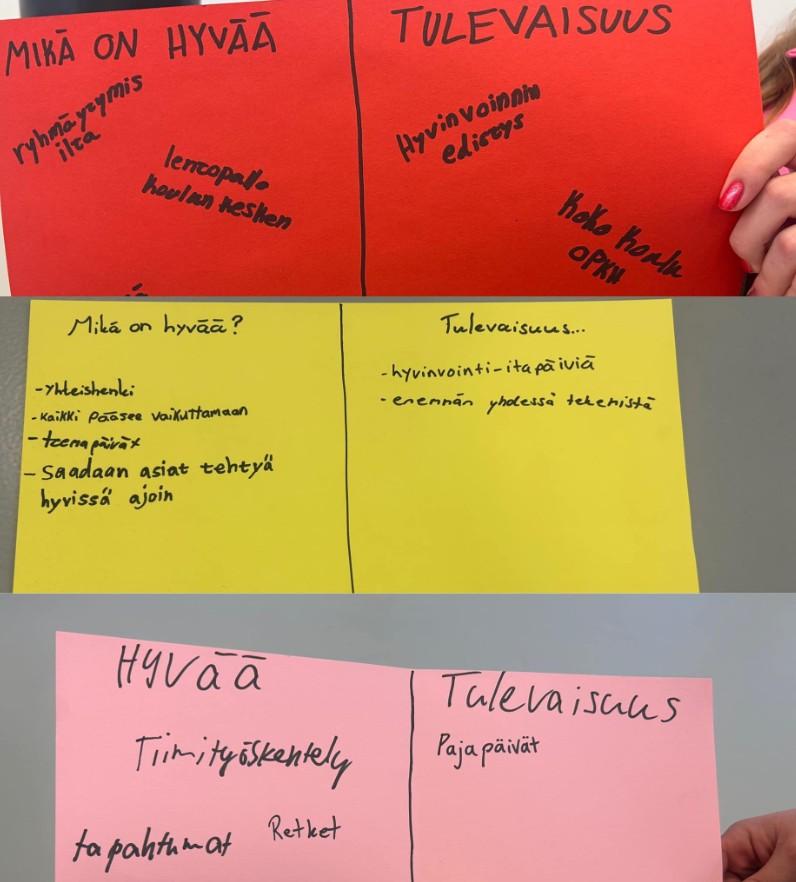 MIKÄ ON HYVÄÄ
ryhmäytymis
ilta
lentopallo
koulun kesken
TULEVAISUUS
Hyvinvoinnin
edistys
Koko koulu
OPKH
Mikä on hyvää?
-Yhteishenki
-Kaikki pääsee vaikuttamaan
-teemapäivät
-Saadaan asiat tehtyä
hyvissä ajoin
Tulevaisuus...
-hyvinvointi-iltapäiviä
-enemmän yhdessä tekemistä
HYVää
Tiimityöskentely
tapahtumat
Retket
Tulevaisuus
Pajapäivät